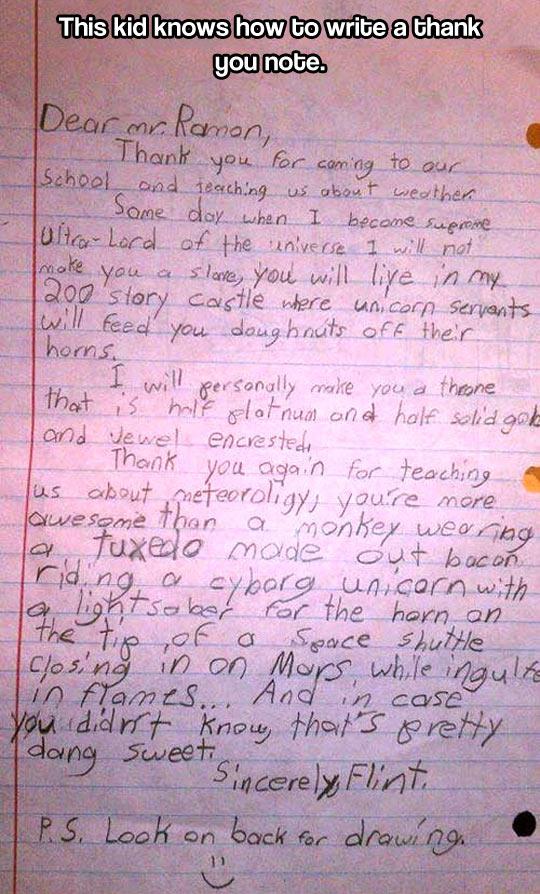 This kid knows how to write a thank
you note.
Dear mr. Ramon,
Thank you for coming to our
School and teaching us about weather.
Some day when I become supreme
Ultra-Lord of the universe I will not
make you a slave, you will live in my
200 story castle where unicorn servants
will feed you doughnuts off their
horns.
I will personally make you a throne
that is half platnum and half solid gold
and jewel encrested.
Thank you again for teaching
us about meteoroligy, you're more
awesome than a monkey wearing
a tuxedo made out bacon
riding a cyborg unicorn with
a lightsaber for the horn on
the tip of a space shuttle
closing in on Mars while ingulfe
in flames... And in case
you didn't know, that's pretty
dang sweet.
Sincerely, Flint.
P.S. Look on back for drawing.